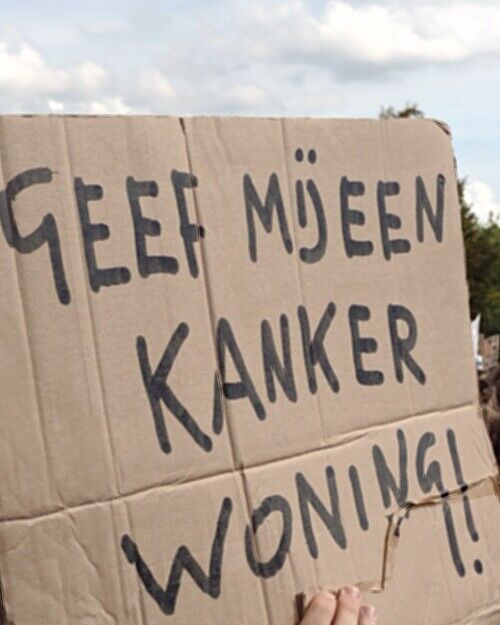 GEEF MIJ EEN
KANKER
WONING!!